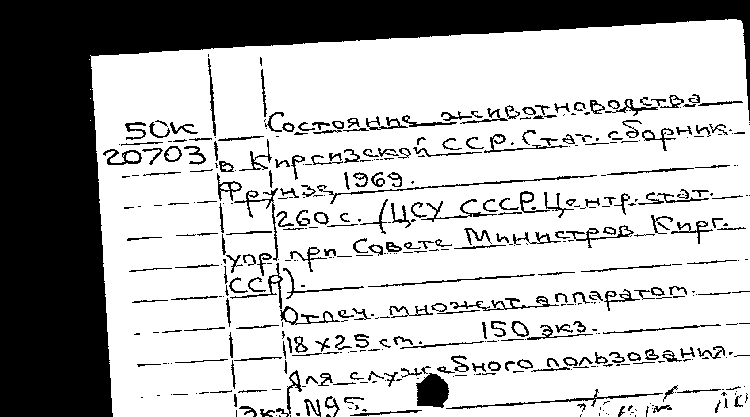 50к
20703
Состояние животноводства
в Киргизской ССР. Стат. сборник.
Фрунзе, 1969.
260 с. (ЦСУ СССР. Центр. стат.
упр. при Совете Министров Кирг.
ССР).
Отпеч. множит. аппаратом.
18 х 25 см. 150 экз.
Для служебного пользования.
Экз. N95.